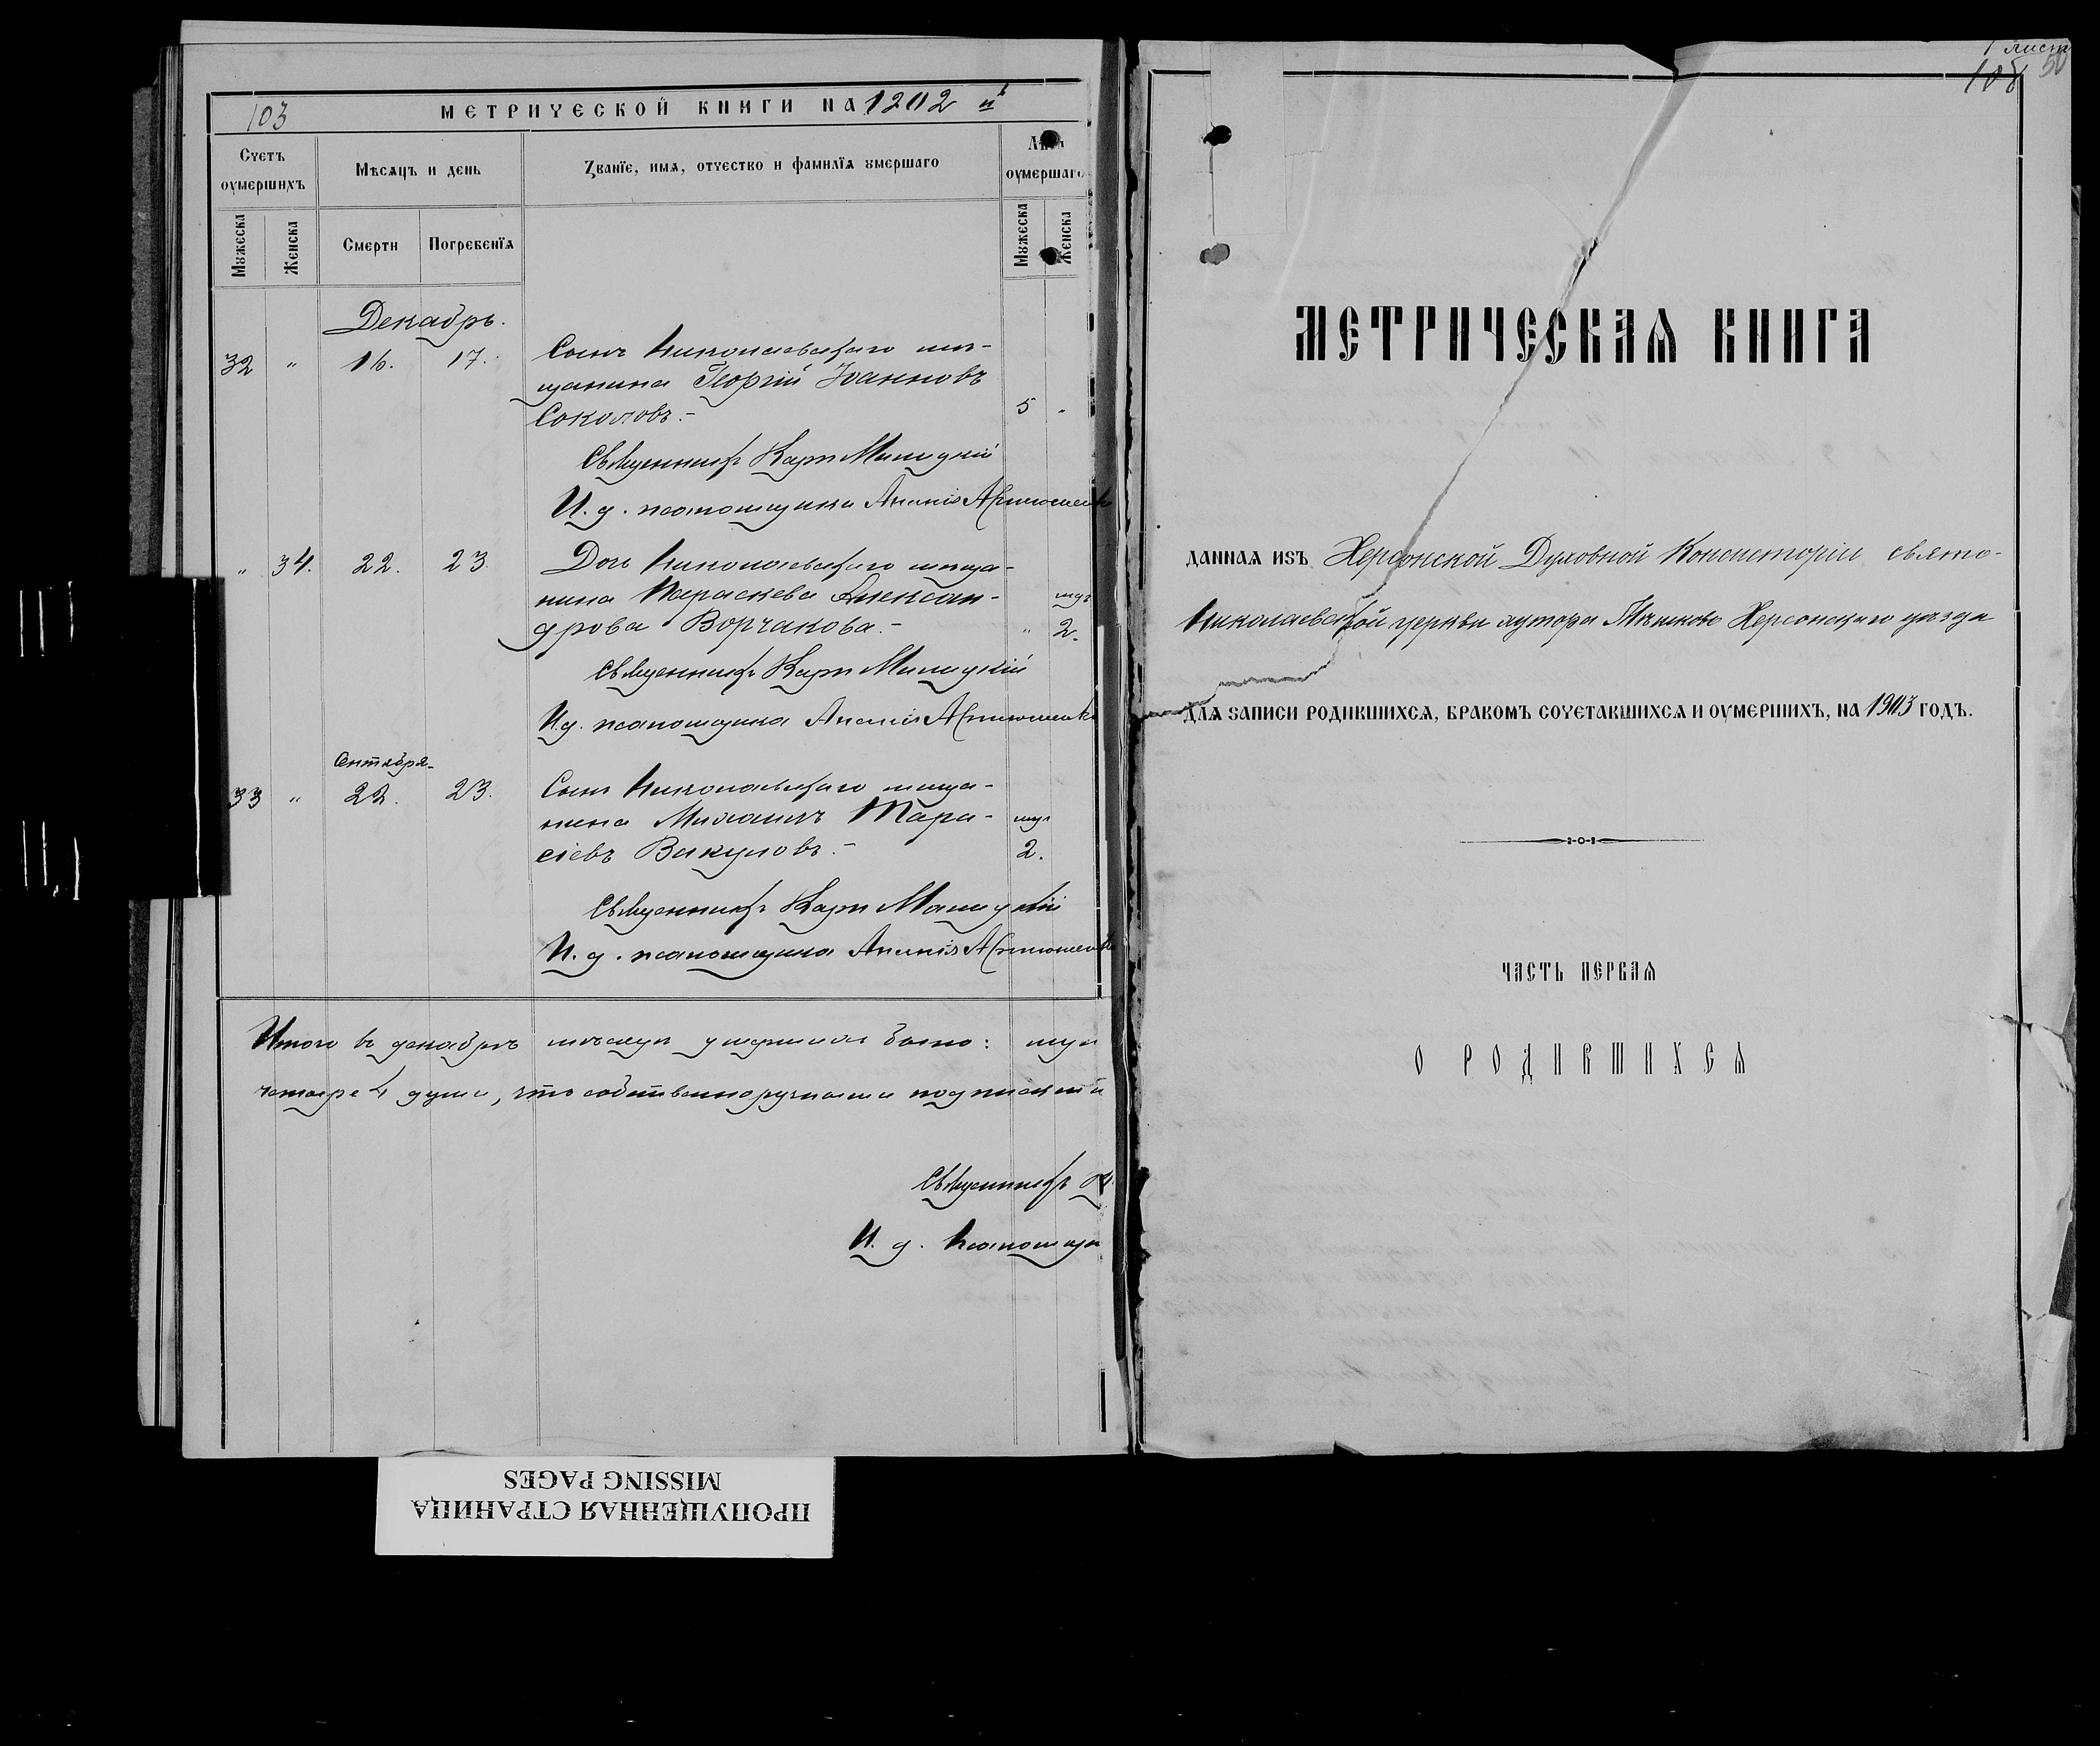 103
МЕТРИЧЕСКОЙ КНИГИ НА 1902 г
Счетъ оумершихъ
Мѣсяцъ и день
Званїе, имя, отчество и фамилїя умершаго
Лѣта оумершаго
Мужеска
Женска
Смерти
Погребенїя
Мужеска
Женска
Декабрь.
32 " 16. 17. Сынъ Николаевскаго мѣ-
щанина Георгій Іоанновъ
Соколовъ.- 5 "
Священникъ Карпъ
И. д. псаломщика Ананія
" 34. 22. 23. Дочь Николаевскаго мѣща-
нина Параскева Алексан-
дрова Ворчакова.- " 2.
Священникъ Карпъ
И. д. псаломщика Ананія
Сентября
33 " 22. 23. Сынъ Николаевскаго мѣща-
нина Михаилъ Тара-
сіевъ Вакуловъ.- 2.
Священникъ Карпъ
И. д. псаломщика Ананія
Итого въ декабрѣ мѣсяцѣ умершихъ было: муж
четыре 4 души, что собственноручными подписями
Священникъ К
И. д. Псаломщи
ПРОПУЩЕННАЯ СТРАНИЦА
MISSING PAGES
1 лист
108 50
МЕТРИЧЕСКАЯ КНИГА
ДАННАЯ ИЗЪ Херсонской Духовной Консисторіи свято-
Николаевской церкви хутора Херсонскаго уѣзда
ДЛЯ ЗАПИСИ РОДИВШИХСЯ, БРАКОМЪ СОЧЕТАВШИХСЯ И ОУМЕРШИХЪ, НА 1903 ГОДЪ.
ЧАСТЬ ПЕРВАЯ
О РОДИВШИХСЯ